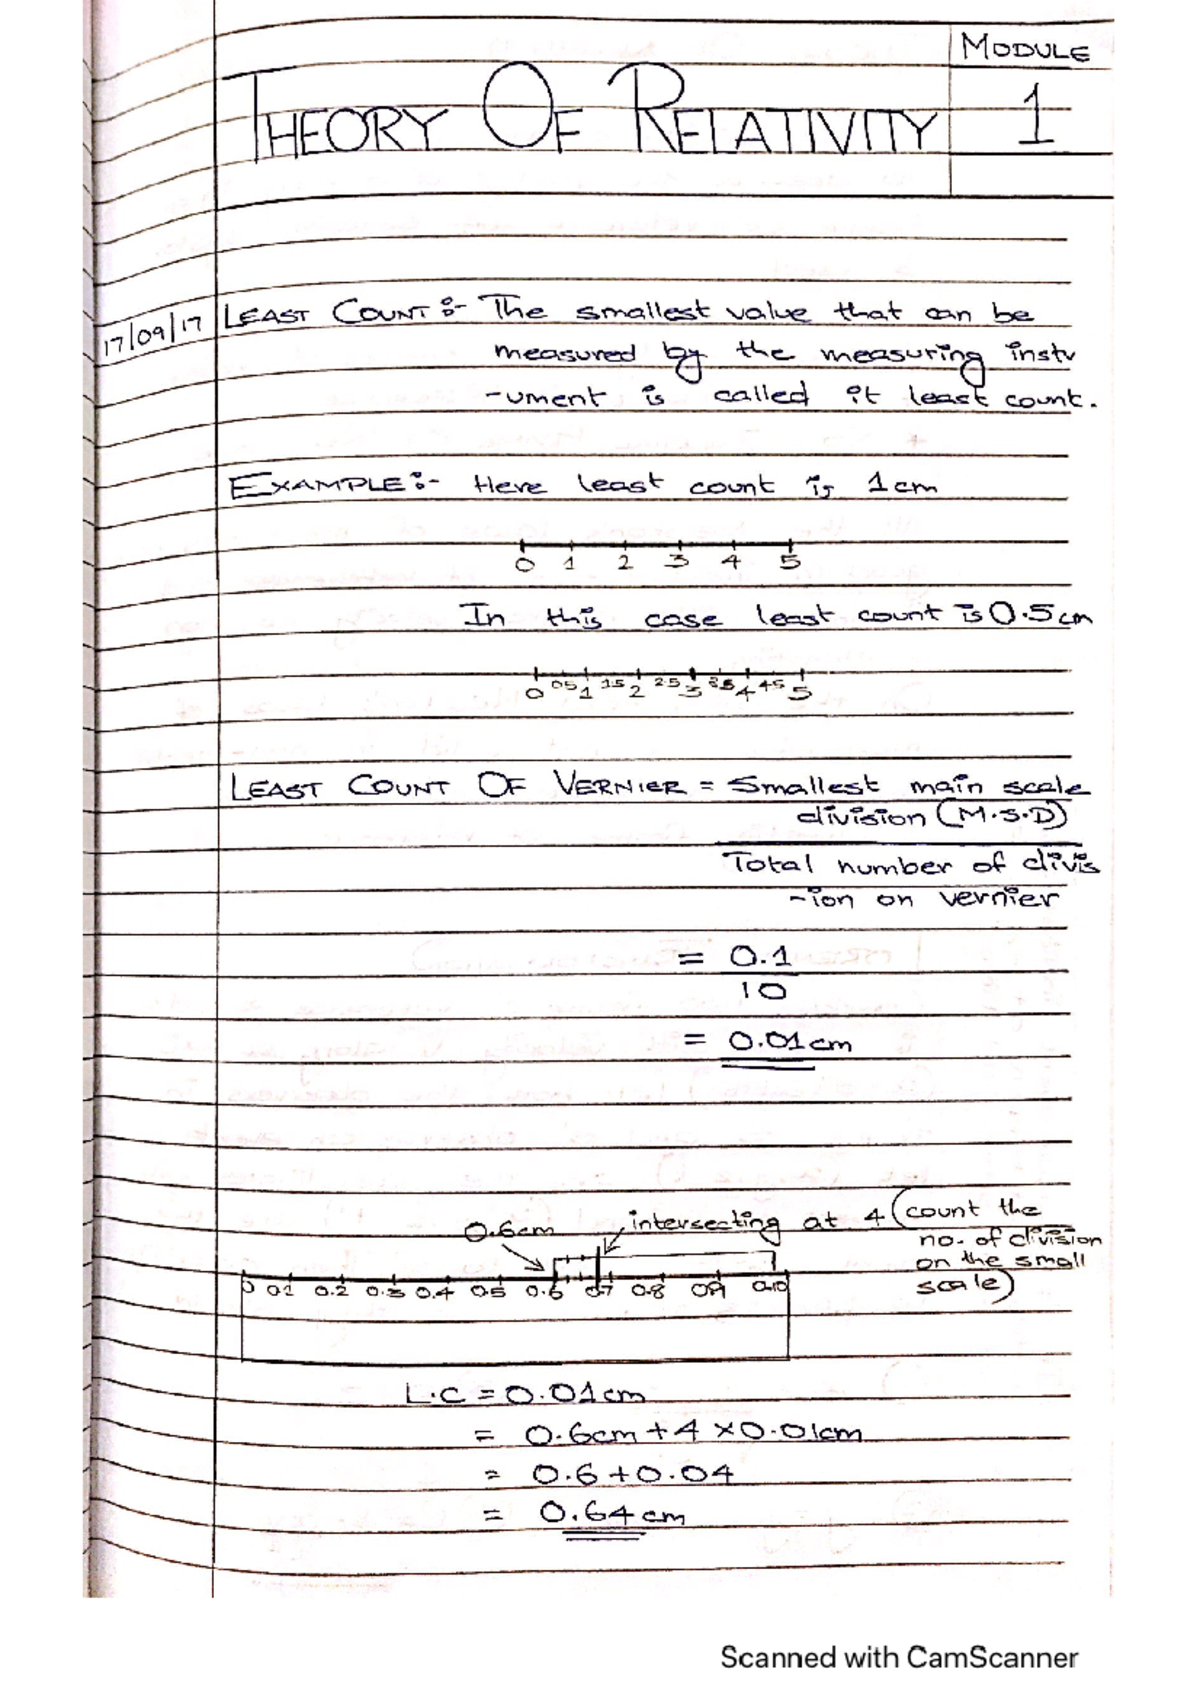 MODULE
THEORY OF RELATIVITY 1
17/09/17 LEAST COUNT :- The smallest value that can be
measured by the measuring instr
-ument is called it least count.
EXAMPLE :- Here least count is 1cm
0 1 2 3 4 5
In this case least count is 0.5cm
0 0.5 1 1.5 2 2.5 3 3.5 4 4.5 5
LEAST COUNT OF VERNIER = Smallest main scale
division (M.S.D)
Total number of divis
-ion on vernier
= 0.1
10
= 0.01cm
0.6cm intersecting at 4 (count the
no. of division
on the small
scale)
0 0.1 0.2 0.3 0.4 0.5 0.6 0.7 0.8 0.9 0.10
L.C = 0.01cm
= 0.6cm + 4 × 0.01cm
= 0.6 + 0.04
= 0.64cm
Scanned with CamScanner